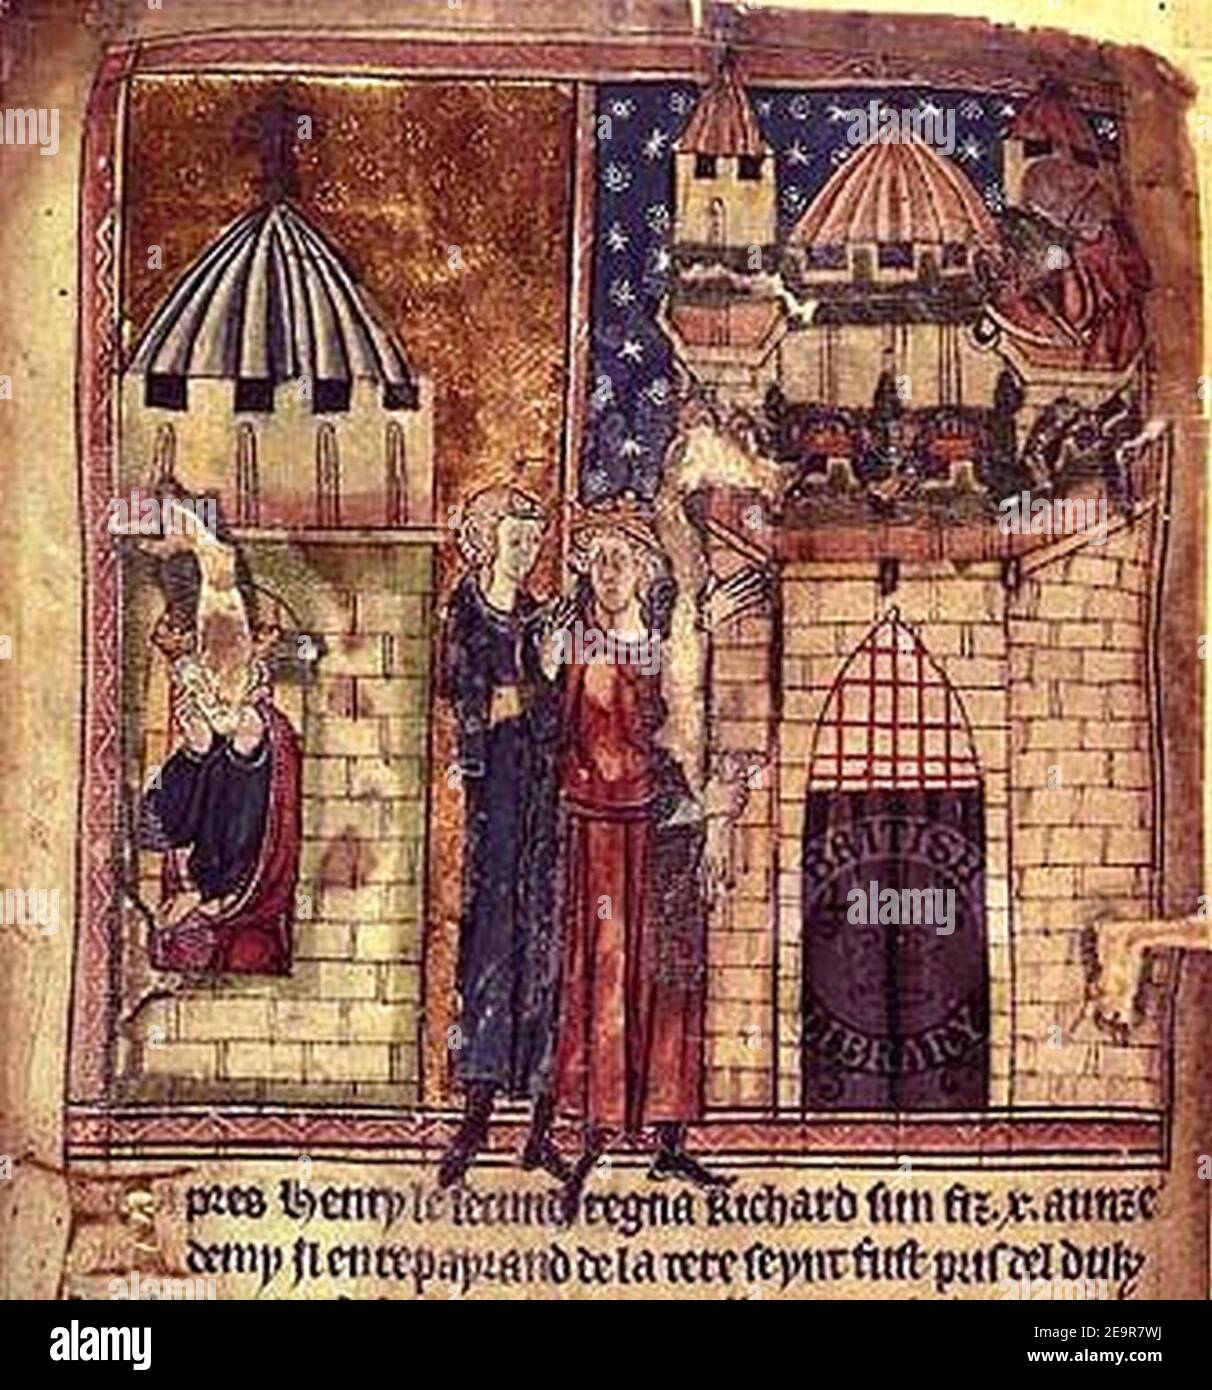 BRITISH
LIBRARY
pres Henry le secund regna Richard sun fiz. x. aunz e
demy si en repayrand de la tere seynt fust pris del duk
alamy
alamy
Image ID: 2E9R7WJ
www.alamy.com